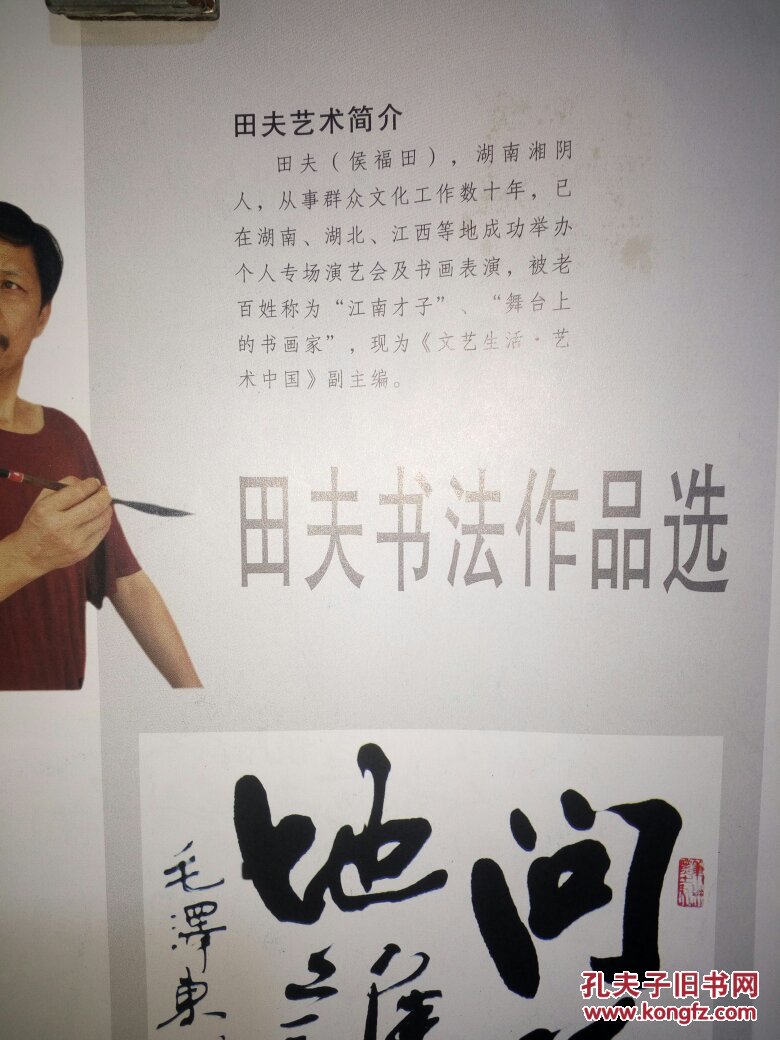 田夫艺术简介
田夫（侯福田），湖南湘阴
人，从事群众文化工作数十年，已
在湖南、湖北、江西等地成功举办
个人专场演艺会及书画表演，被老
百姓称为“江南才子”、“舞台上
的书画家”，现为《文艺生活·艺
术中国》副主编。
田夫书法作品选
问
地
谁
毛澤東
孔夫子旧书网
www.kongfz.com